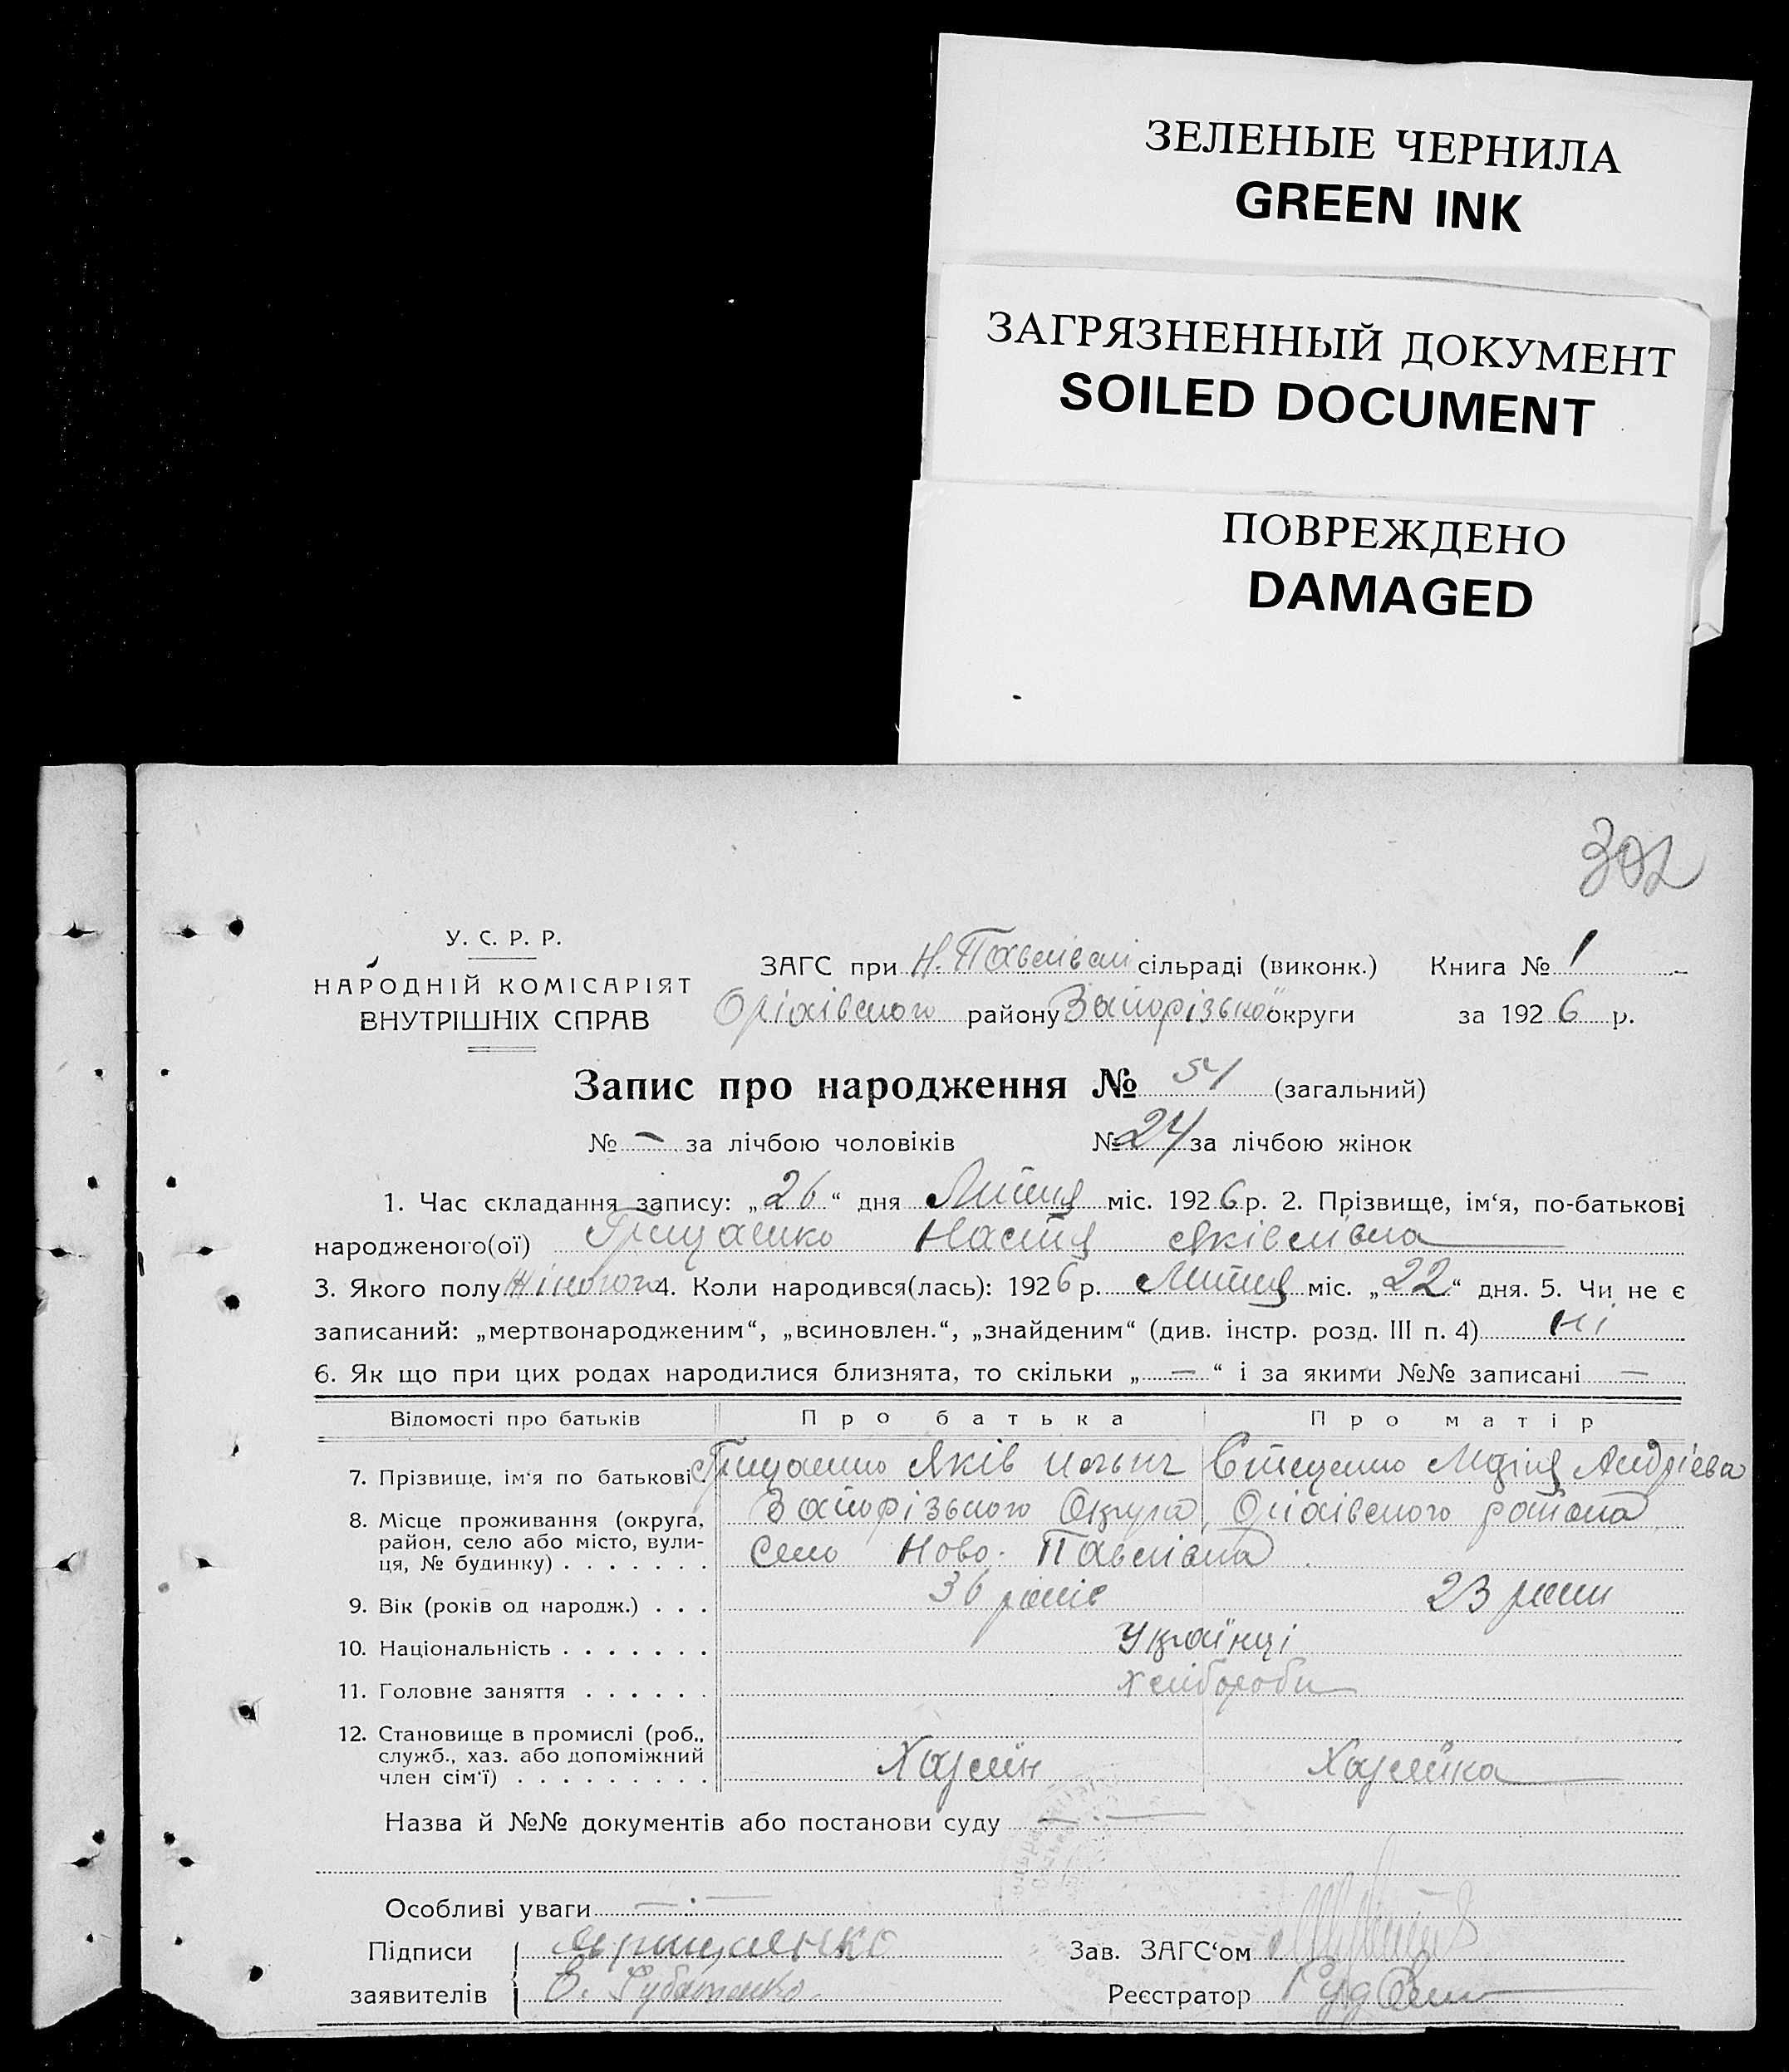 ЗЕЛЕНЫЕ ЧЕРНИЛА
GREEN INK
ЗАГРЯЗНЕННЫЙ ДОКУМЕНТ
SOILED DOCUMENT
ПОВРЕЖДЕНО
DAMAGED
302
У. С. Р. Р.
НАРОДНІЙ КОМІСАРІЯТ
ВНУТРІШНІХ СПРАВ
ЗАГС при Н. Павлівскі сільраді (виконк.) Книга № 1
Оріхівского району Запорізькоï округи за 1926 р.
Запис про народження № 54 (загальний)
№ — за лічбою чоловіків № 24 за лічбою жінок
1. Час складання запису: „26“ дня Липня міс. 1926 р. 2. Прізвище, ім‘я, по-батькові
народженого(ої) Грицаенко Настя Яківлівна
3. Якого полу Жіночого 4. Коли народився(лась): 1926 р. Липня міс. „22“ дня. 5. Чи не є
записаний: „мертвонародженим“, „всиновлен.“, „знайденим“ (див. інстр. розд. III п. 4) Ні
6. Як що при цих родах народилися близнята, то скільки „—“ і за якими №№ записані —
Відомості про батьків Про батька Про матір
7. Прізвище, ім‘я по батькові Грицаенко Яків Стеценко Марія Андрієва
8. Місце проживання (округа, район, село або місто, вулиця, № будинку) Запорізького Округа, Оріхівского района
Село Ново-Павлівка
9. Вік (років од народж.) 36 років 23 роки
10. Національність Українці
11. Головне заняття Хлібороби
12. Становище в промислі (роб., служб., хаз. або допоміжний член сім‘ї) Хазяїн Хазяйка
Назва й №№ документів або постанови суду —
Особливі уваги —
Підписи Грицаенко Зав. ЗАГС‘ом
заявителів Реєстратор